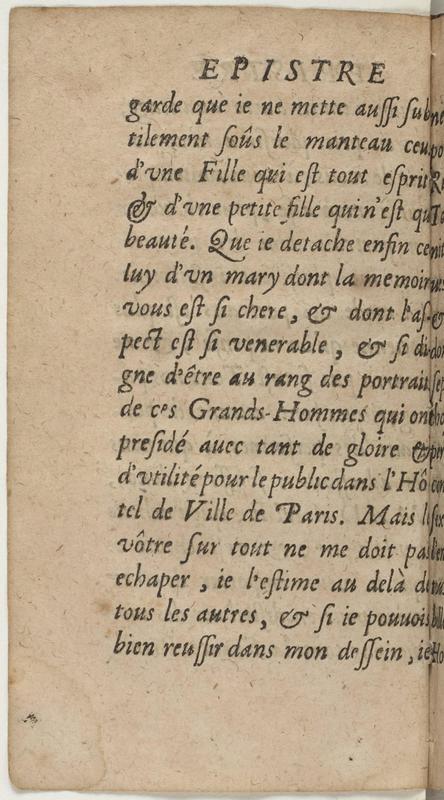 EPISTRE
garde que ie ne mette aussi sub
tilement soûs le manteau ceu
d'vne Fille qui est tout esprit
& d'vne petite fille qui n'est qu
beauté. Que ie detache enfin ce
luy d'vn mary dont la memoir
vous est si chere, & dont l'as-
pect est si venerable, & si di
gne d'être au rang des portrait
de ces Grands-Hommes qui ont
presidé auec tant de gloire &
d'vtilité pour le public dans l'Hô
tel de Ville de Paris. Mais l
vôtre sur tout ne me doit pa
echaper, ie l'estime au delà d
tous les autres, & si ie pouuois
bien reussir dans mon dessein, ie